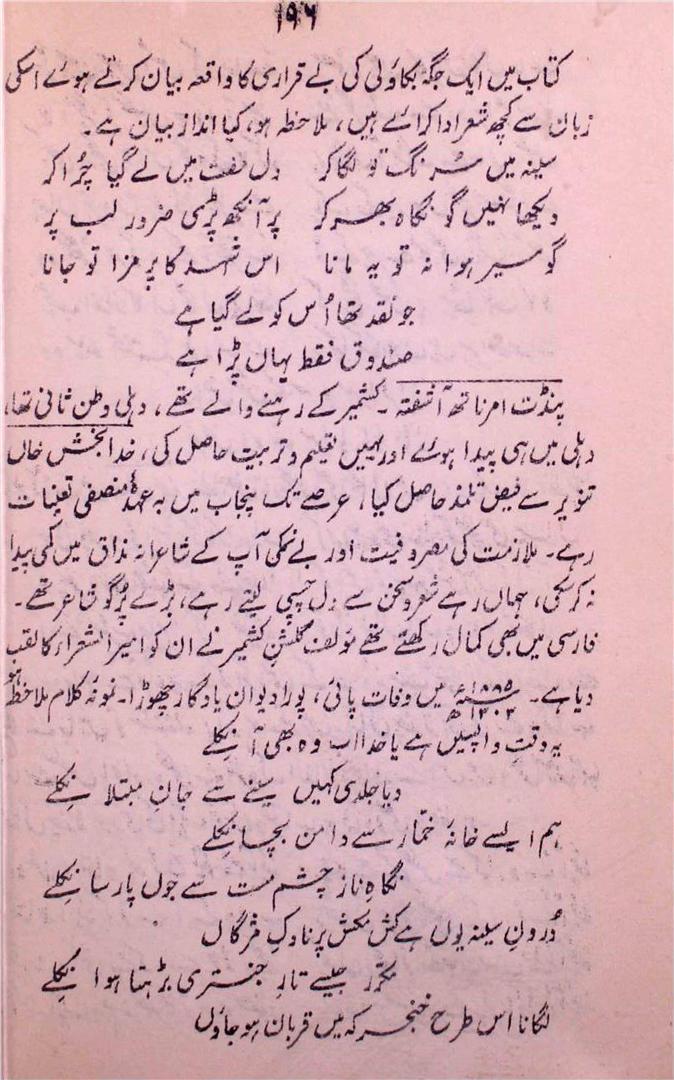 ۱۹۶
کتاب میں ایک جگہ بکاؤلی کی بے قراری کا واقعہ بیان کرتے ہوئے اسکی
زبان سے کچھ شعر ادا کرائے ہیں، ملاحظہ ہو، کیا انداز بیان ہے۔
سینہ میں سُرنگ تو لگا کر دل مفت میں لے گیا چُرا کر
دیکھا نہیں گو نگاہ بھر کر پر آنکھ پڑی ضرور لب پر
گو سیر ہوا نہ تو یہ مانا اس شہد کا پر مزا تو جانا
جو نقد تھا اُس کو لے گیا ہے
صندوق فقط یہاں پڑا ہے
پنڈت امرناتھ آشفتہ ۔ کشمیر کے رہنے والے تھے، دہلی وطن ثانی تھا،
دہلی میں ہی پیدا ہوئے اور یہیں تعلیم و تربیت حاصل کی، خدا بخش خاں
تنویر سے فیض تلمذ حاصل کیا، عرصے تک پنجاب میں بہ عہدۂ منصفی تعینات
رہے۔ ملازمت کی مصروفیت اور بے نمکی آپ کے شاعرانہ مذاق میں کمی پیدا
نہ کرسکی، جہاں رہے شعر و سخن سے دل چسپی لیتے رہے، بڑے پُرگو شاعر تھے۔
فارسی میں بھی کمال رکھتے تھے مؤلف گلشنِ کشمیر نے ان کو امیر الشعراء کا لقب
دیا ہے۔ ۱۸۸۵ء ۱۳۰۲ھ میں وفات پائی، پورا دیوان یادگار چھوڑا۔ نمونۂ کلام ملاحظہ ہو
یہ وقتِ واپسیں ہے یا خدا اب وہ بھی آ نکلے
دیا جلدی کہیں سینے سے جانِ مبتلا نکلے
ہم ایسے خانۂ خمّار سے دامن بچا نکلے
نگاہِ ناز چشمِ مست سے جوں پارسا نکلے
دُرونِ سینہ یوں ہے کش مکش پر ناوکِ مژگاں
مکرّر جیسے تارِ جنتری بڑہتا ہوا نکلے
لگانا اس طرح خنجر کہ میں قربان ہو جاؤں